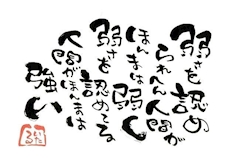 弱さを認め
られへん人間
ほんまは弱い
弱さを認めてるな
人間がほんまは
強い